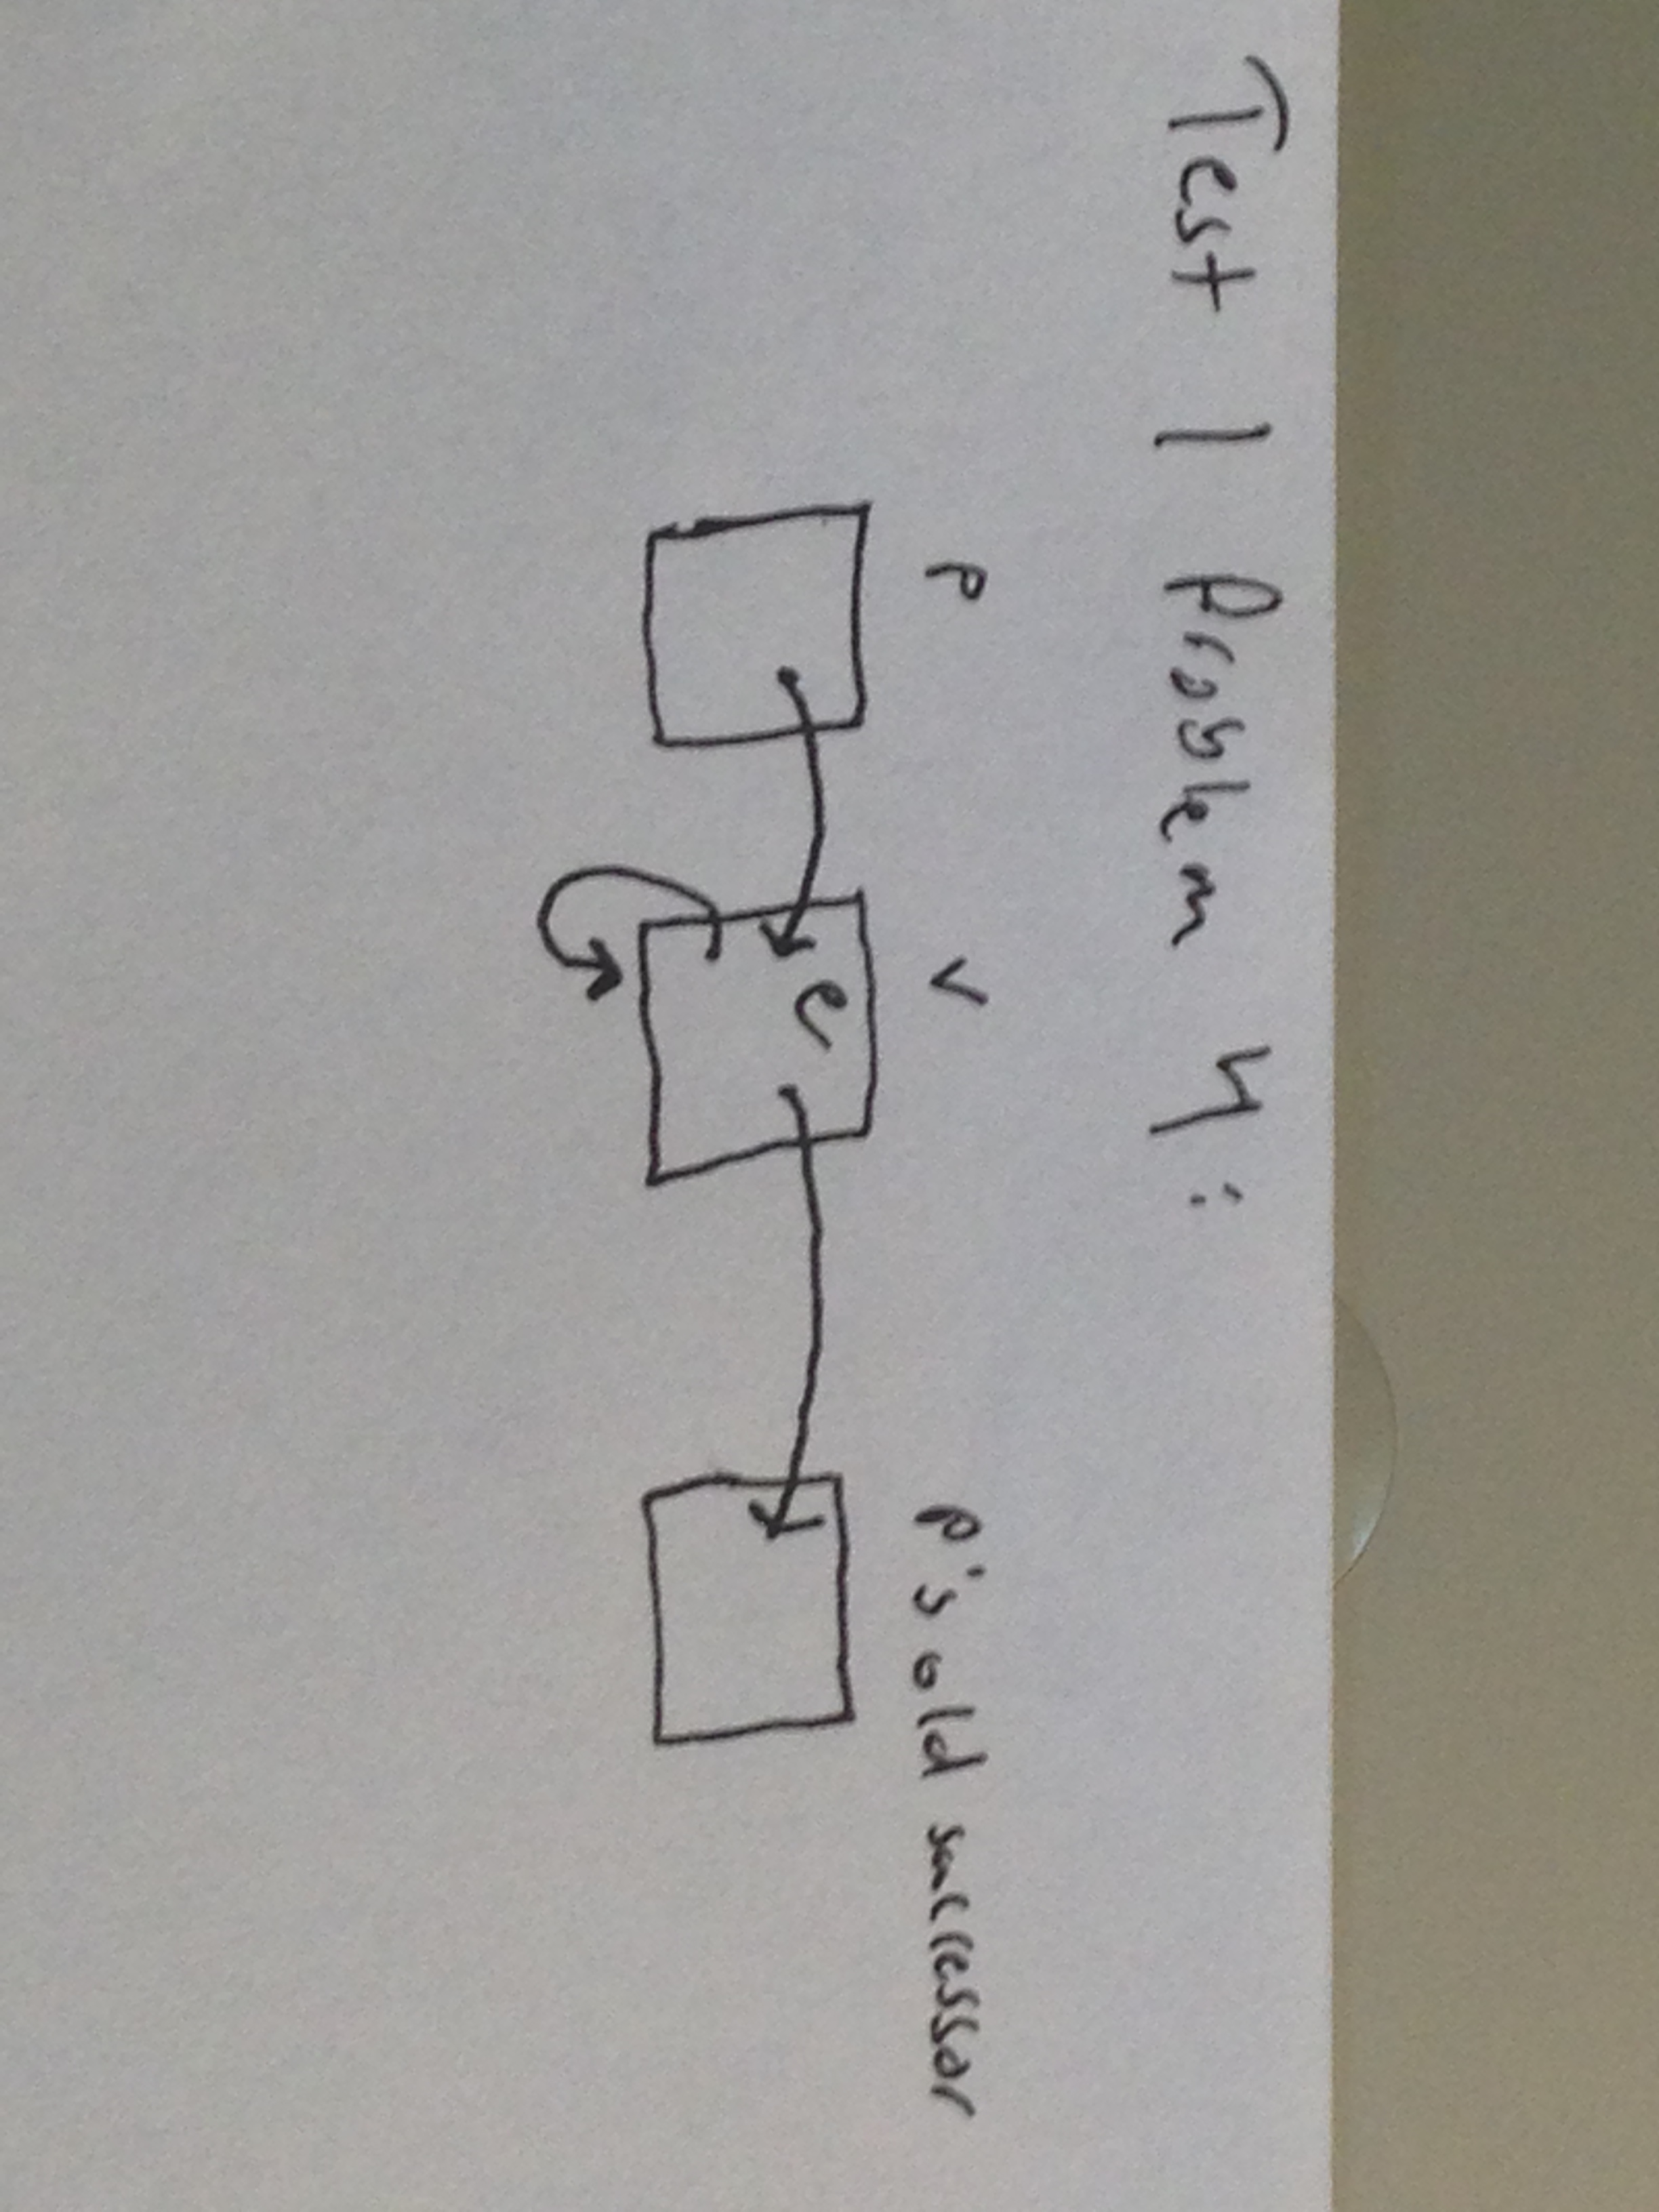 Test 1 Problem 4:
p v p's old successor
e